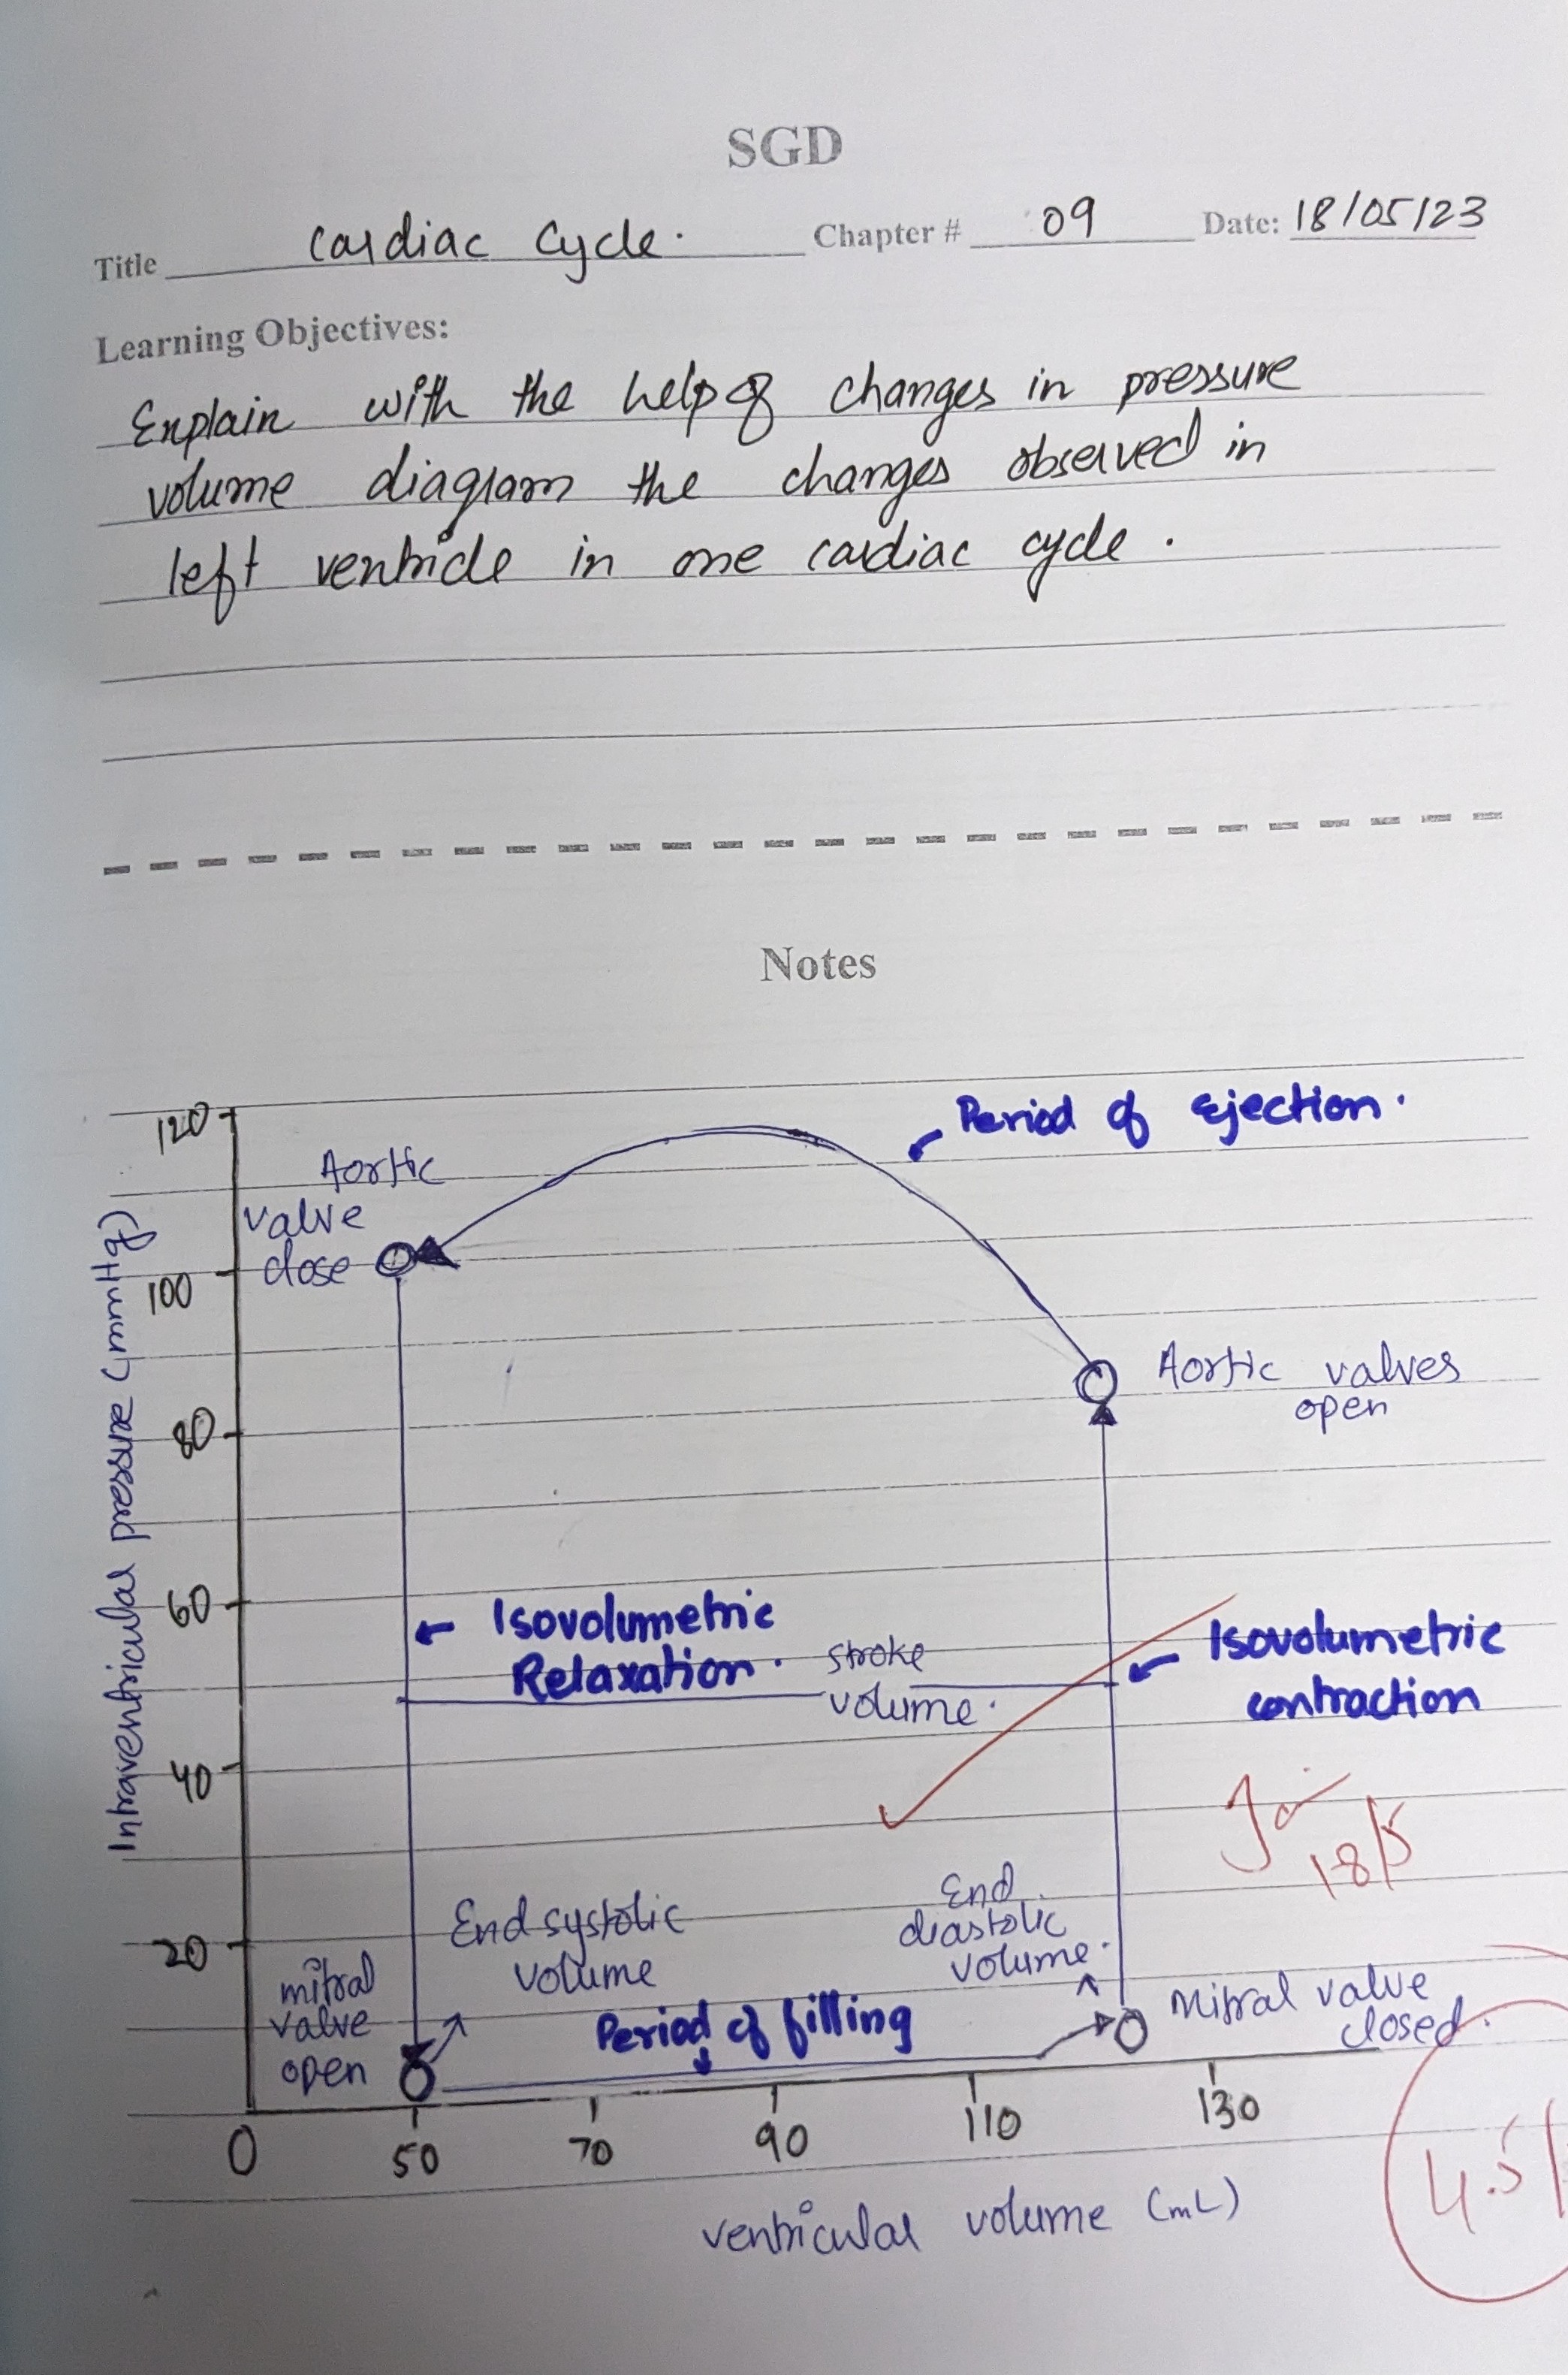 SGD
Title Cardiac Cycle. Chapter # 09 Date: 18/05/23
Learning Objectives:
Explain with the help of changes in pressure
volume diagram the changes observed in
left ventricle in one cardiac cycle.
Notes
Period of Ejection.
120
Aortic
valve
close
100
Aortic valves
open
80
Intraventricular pressure (mmHg)
60
Isovolumetric
Relaxation.
stroke
volume.
Isovolumetric
contraction
40
18/5
20
End systolic
volume
End
diastolic
volume.
mitral
valve
open
Period of filling
Mitral valve
closed.
0
50
70
90
110
130
ventricular volume (mL)
4.5/